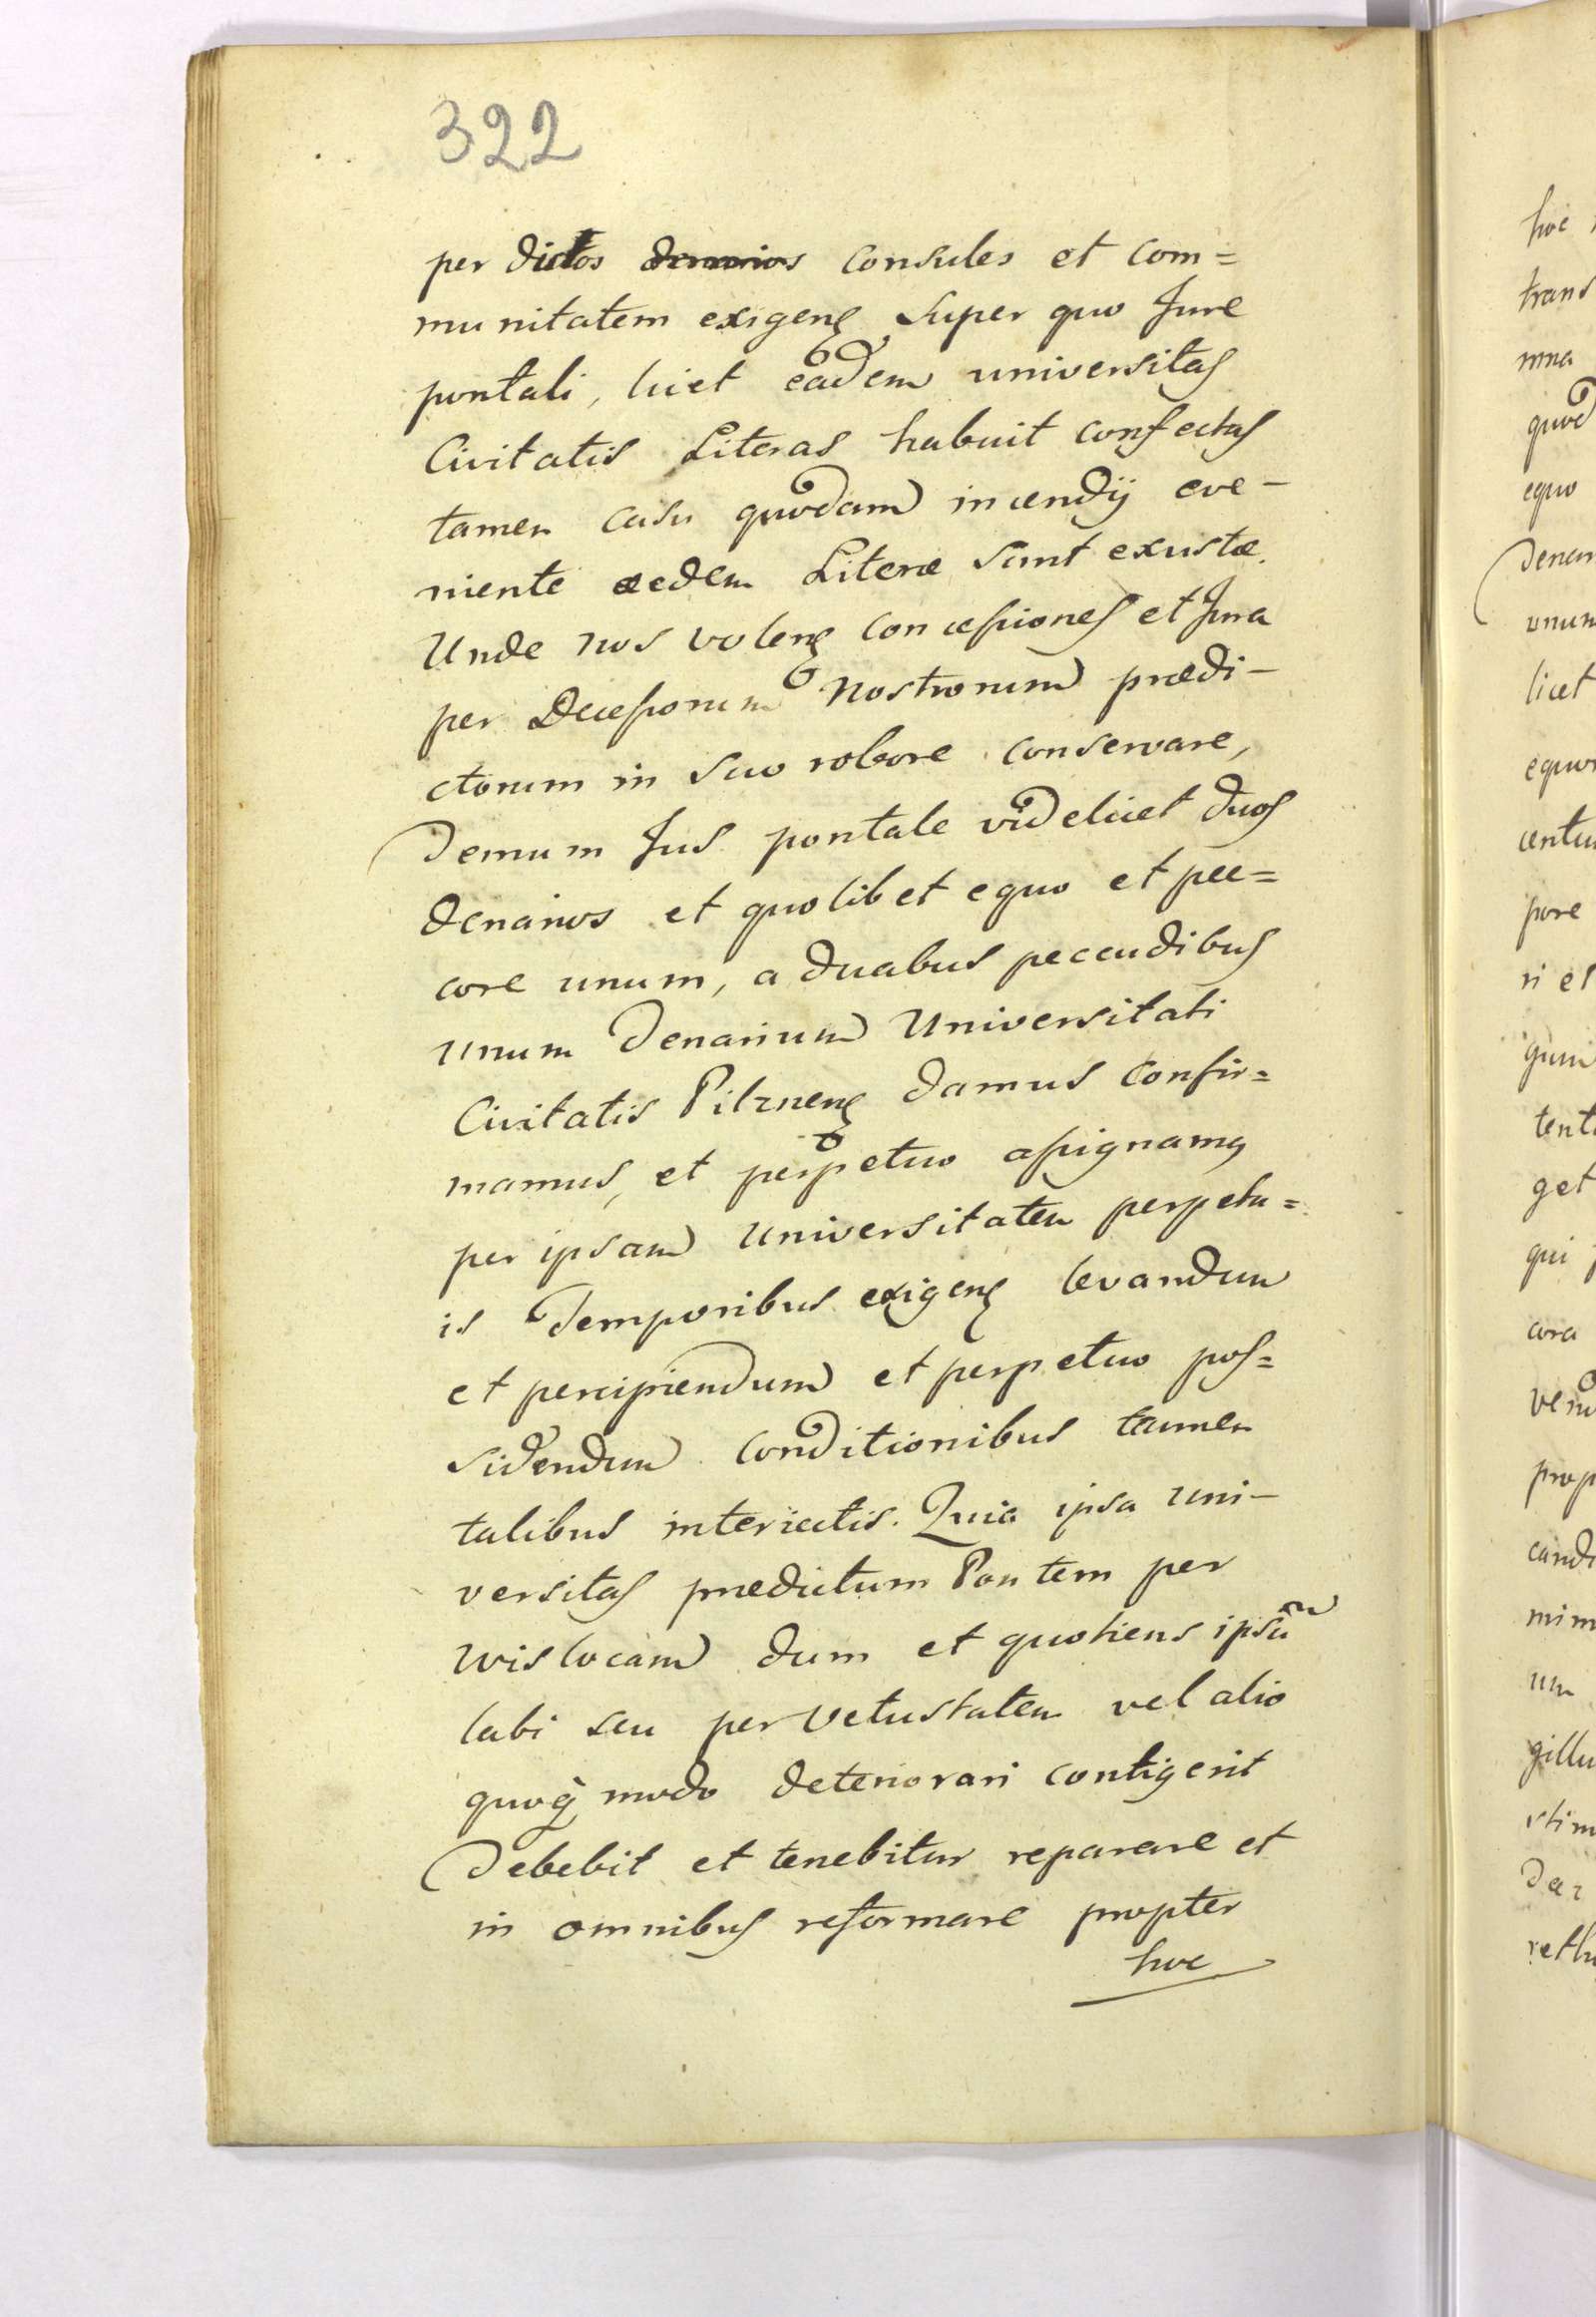 322
per dictos denarios consules et com=
munitatem exigenȩ super quo Jure
pontali, licet eadem universitas
Civitatis Literas habuit confectas
tamen casu quodam incendij eve-
niente aedem Literæ sunt exustæ.
Unde nos volenȩ concessiones et Jura
per Decessorum Nostrorum prædi-
ctorum in suo robore conservare,
Demum Jus pontale videlicet duos
denarios et quolibet equo et pec=
core unum, a duabus peccudibus
unum Denarium Universitati
Civitatis Pilznenȩ damus confir=
mamus, et perpetuo assignamꝰ
per ipsam Universitatem perpetu=
is Temporibus exigenȩ levandum
et percipiendum et perpetuo pos=
sidendum conditionibus tamen
talibus interiectis. Quia ipsa uni-
versitas prædictum Pontem per
Wislocam dum et quotiens ipsū
labi seu per vetustatem vel alio
quoq̀ modo deteriorari contigerit
Debebit et tenebitur reparare et
in omnibus reformare propter
hoc
hoc
trans
mna
quod
equo
Denar
unum
licet
equor
centu
pore
ri et
gum
tent
get
qui
cora
prop
cand
mim
um
gillu
stim